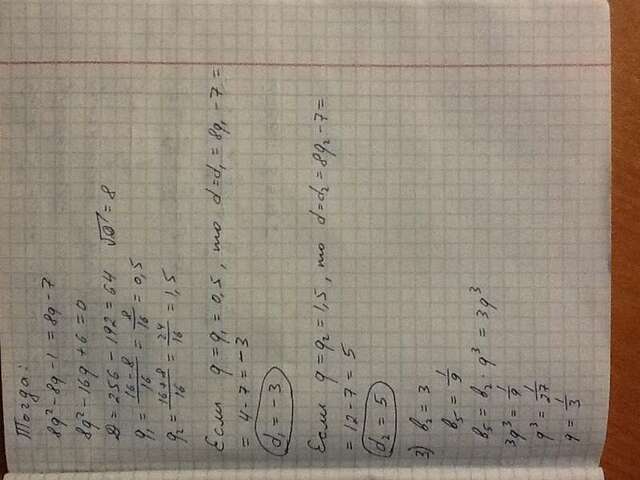 Тогда:
8q² - 8q - 1 = 8q - 7
8q² - 16q + 6 = 0
D = 256 - 192 = 64 √D = 8
q₁ = (16 - 8)/16 = 8/16 = 0,5
q₂ = (16 + 8)/16 = 24/16 = 1,5
Если q = q₁ = 0,5, то d = d₁ = 8q₁ - 7 =
= 4 - 7 = -3
d₁ = -3
Если q = q₂ = 1,5, то d = d₂ = 8q₂ - 7 =
= 12 - 7 = 5
d₂ = 5
3) b₂ = 3
b₅ = 1/9
b₅ = b₂ · q³ = 3q³
3q³ = 1/9
q³ = 1/27
q = 1/3